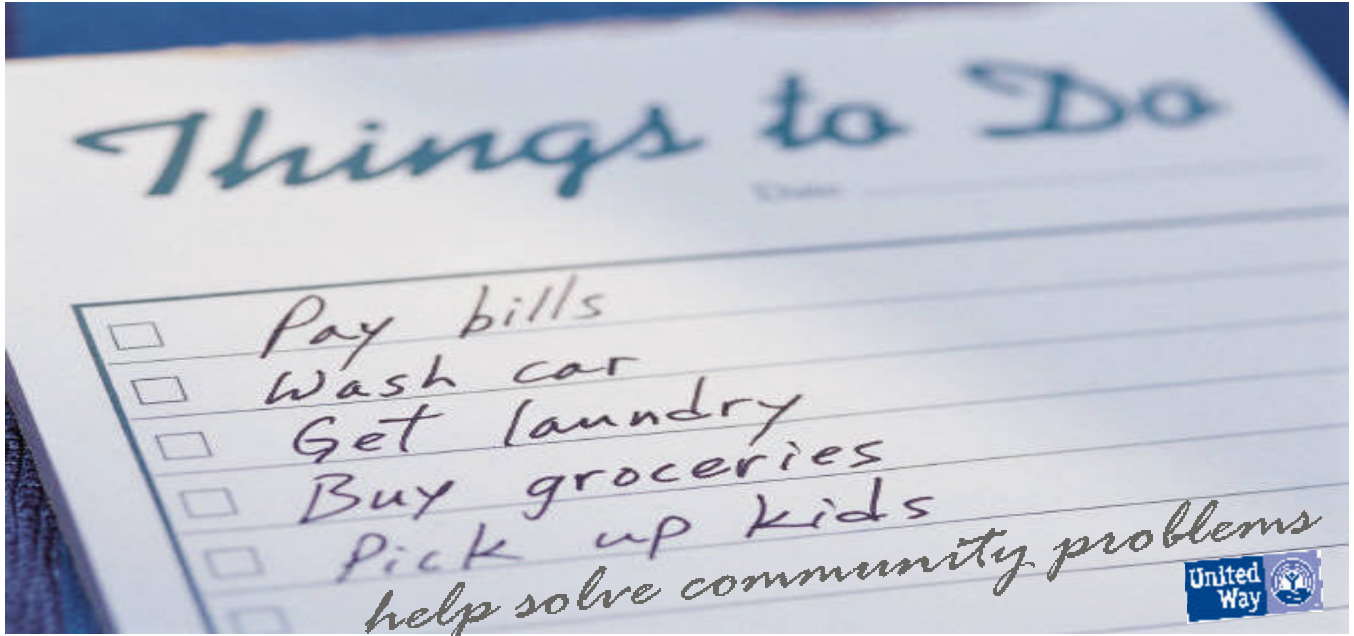 Things to Do
Date
Pay bills
Wash car
Get laundry
Buy groceries
Pick up kids
help solve community problems
United
Way